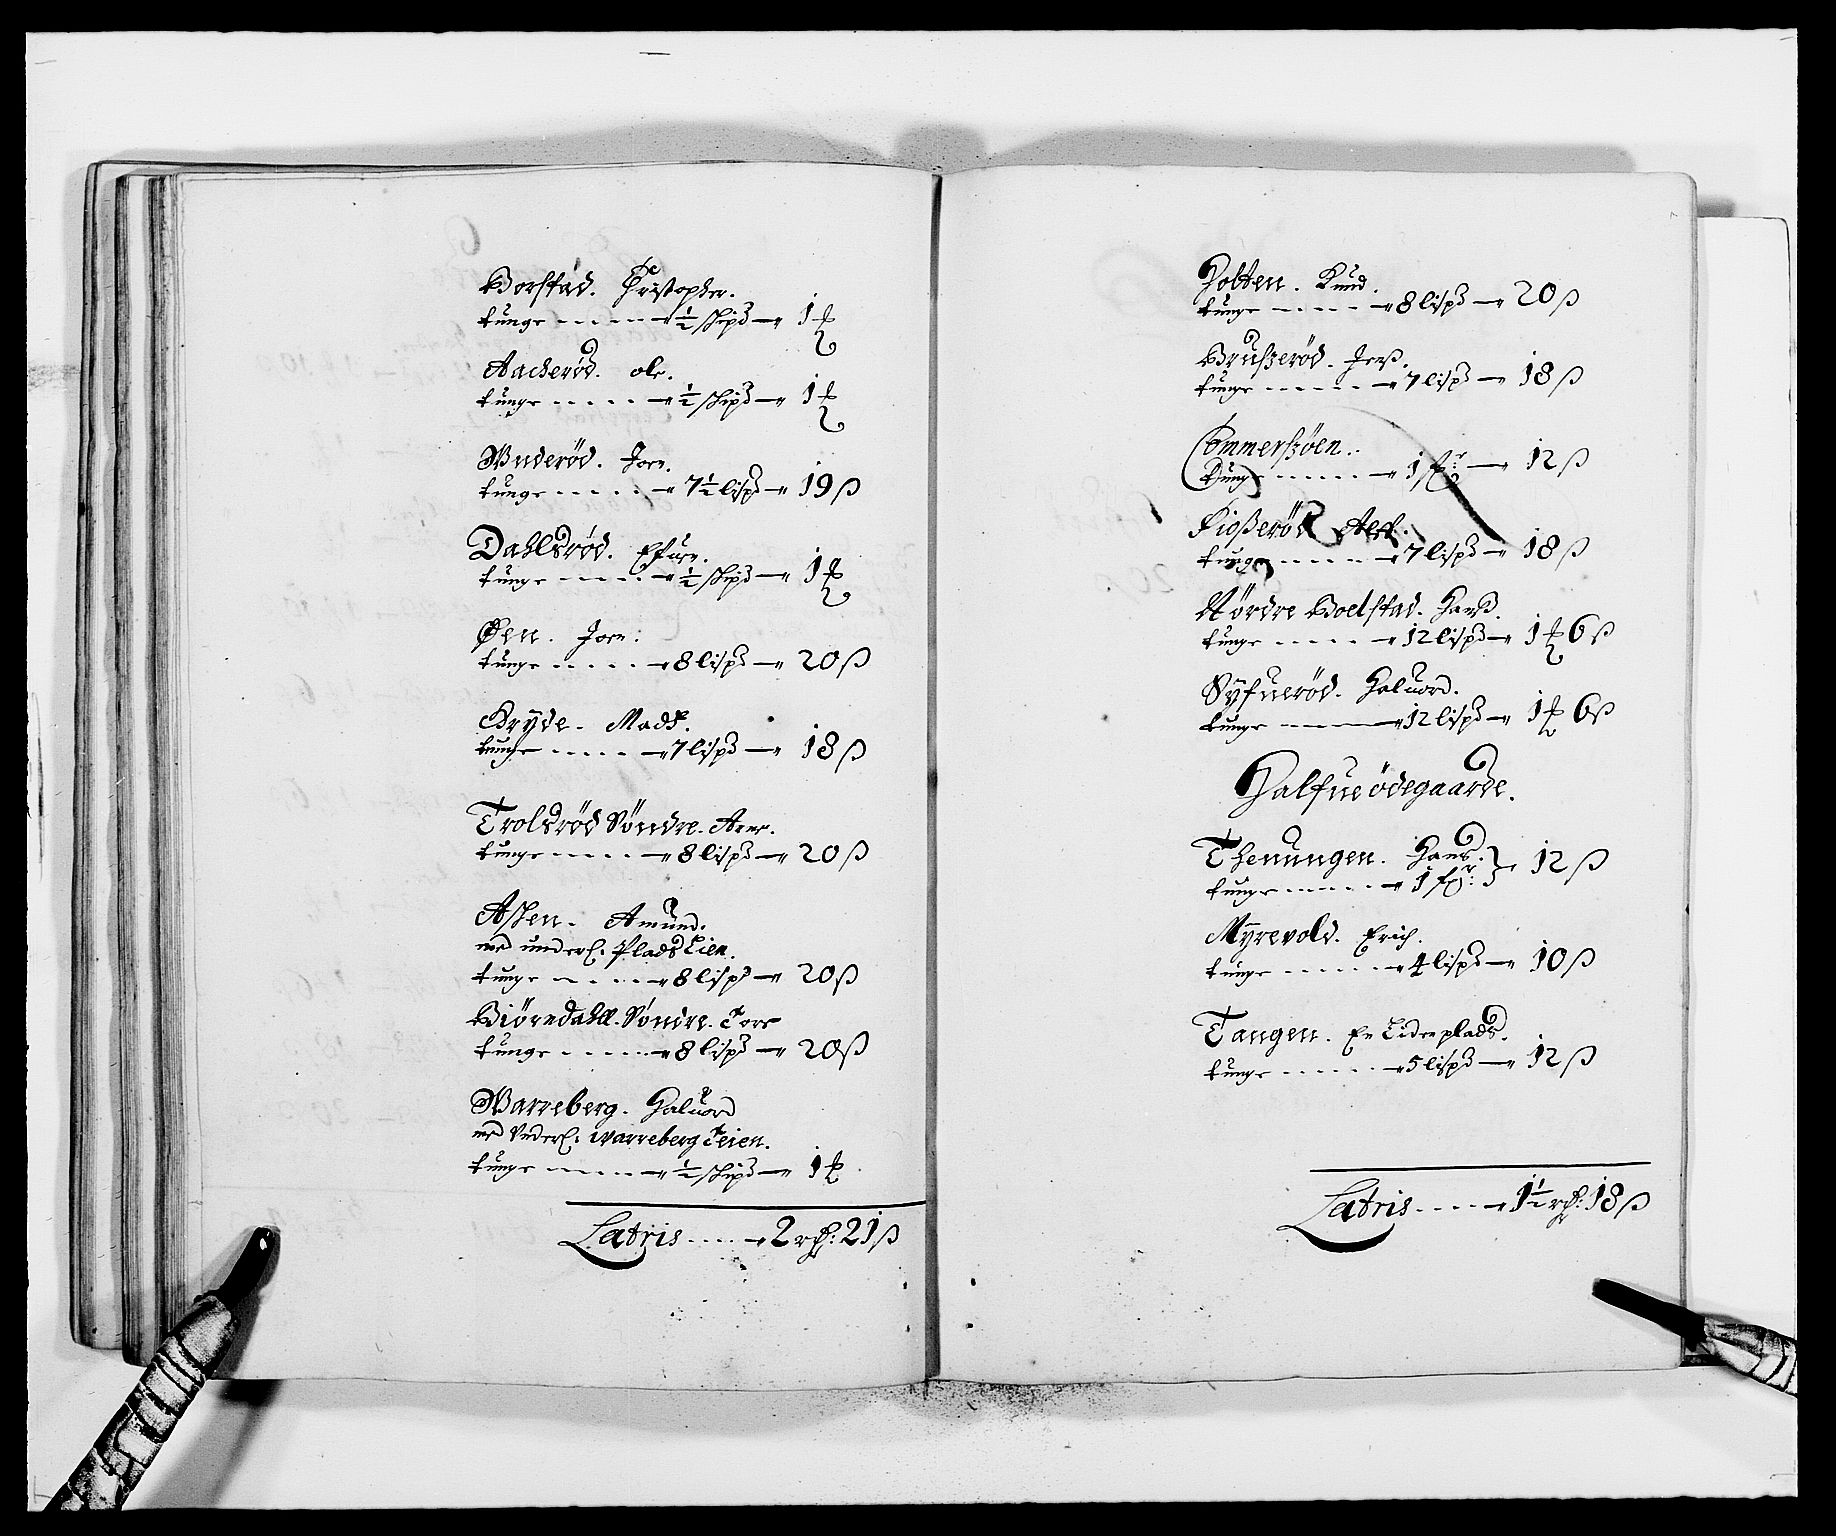 Borstad. Christopher.
tunge ----- ½ skipd — 1
Aackerød. ole.
tunge ----- ½ skipd — 1
Wnderød. Joen.
tunge ----- 7½ lispd — 19 ß
Dahlsrød. Efuen.
tunge ----- ½ skipd — 1
Øen. Joen:
tunge ----- 8 lispd — 20 ß
Bryde. Mads.
tunge ----- 7 lispd — 18 ß
Trolsrød Søndre. Arne.
tunge ----- 8 lispd — 20 ß
Asken. Amund.
med underl: Plads Eien.
tunge ----- 8 lispd — 20 ß
Biørndahll. Søndre. Tore
tunge ----- 8 lispd — 20 ß
Warreberg. Haluord
med Vnderl: warreberg Teien.
tunge ----- ½ skipd — 1
Latris ---- 2 rd: 21 ß
Holtten. Knud.
tunge ----- 8 lispd — 20 ß
Brußerød. Jens.
tunge ----- 7 lispd — 18 ß
Commersøen.
tunge ----- 1 fr: — 12 ß
Fioßerød
tunge ----- 7 lispd — 18 ß
Nørdre Boelstad. Hans.
tunge ----- 12 lispd — 1 6 ß
Syfuerød. Haluord.
tunge ----- 12 lispd — 1 6 ß
Halfue ødegaarde.
Thenungen. Hans. 12 ß
tunge ----- 1 fr:
Myrevold. Erich.
tunge ----- 4 lispd — 10 ß
Tangen. En Eidenplads.
tunge ----- 5 lispd — 12 ß
Latris ---- 1½ rd: 18 ß